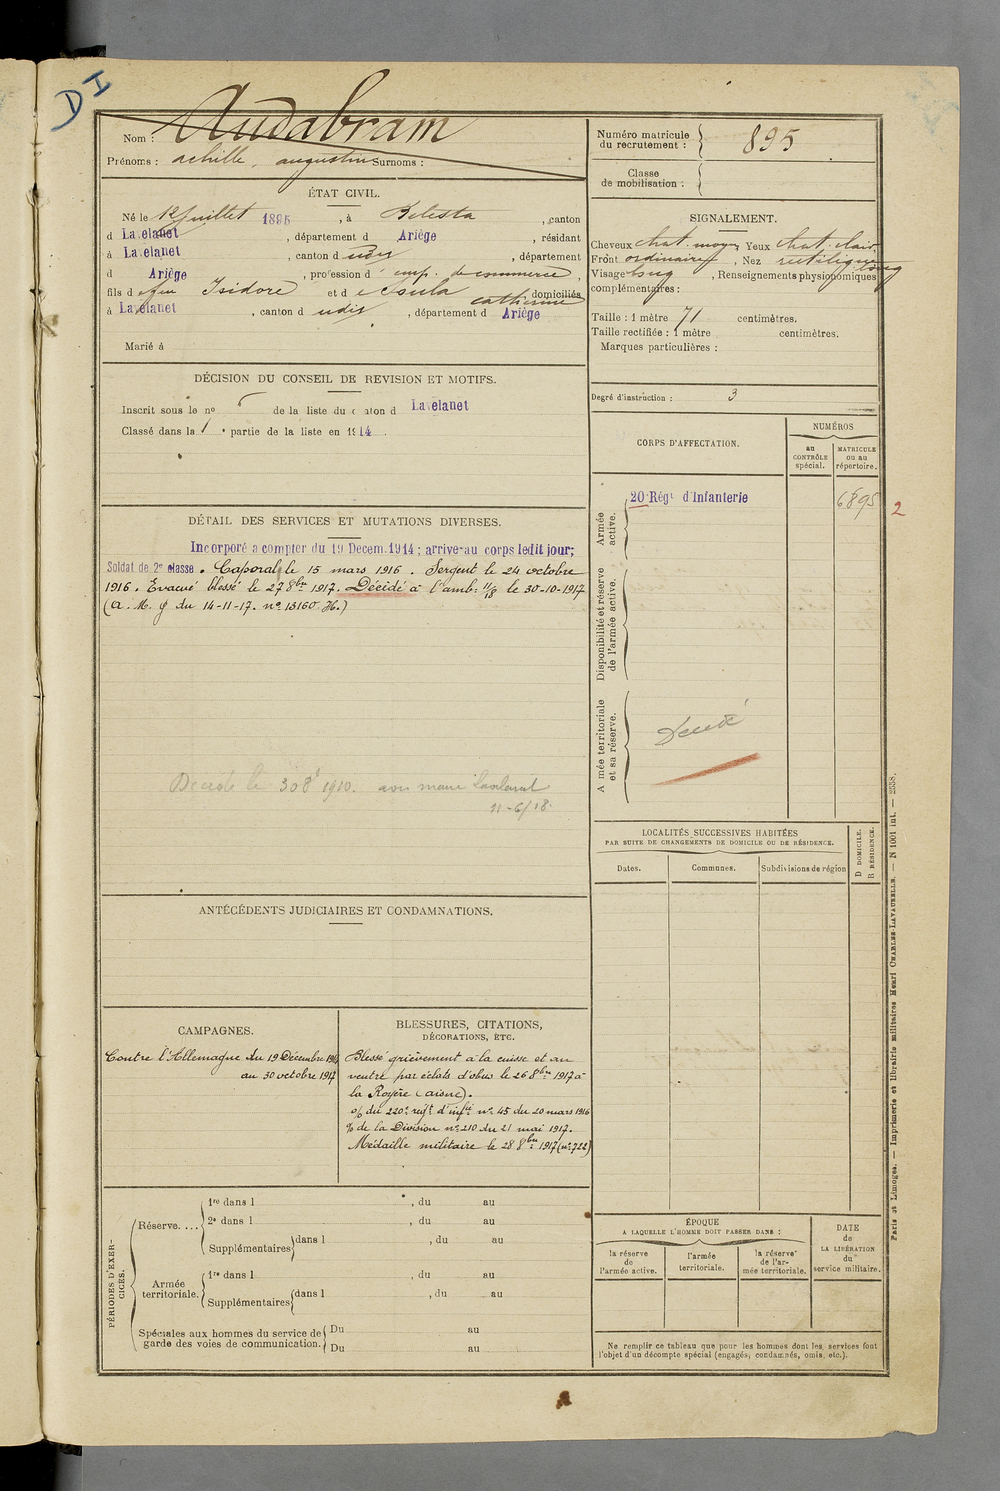 D I
Nom : Audabram
Prénoms : achille, augustin Surnoms :
Numéro matricule
du recrutement : 895
Classe
de mobilisation :
ÉTAT CIVIL.
Né le 12 Juillet 1895, à Belesta, canton
d Lavelanet, département d Ariège, résidant
à Lavelanet, canton d udis, département
d Ariège, profession d emp. de commerce,
fils d e feu Isidore et d e Soula catherine domiciliés
à Lavelanet, canton d udis, département d Ariège
Marié à
SIGNALEMENT.
Cheveux chat. moyen Yeux chat. clair
Front ordinaire, Nez rectiligne long
Visage long, Renseignements physionomiques
complémentaires :
Taille : 1 mètre 71 centimètres.
Taille rectifiée : 1 mètre centimètres.
Marques particulières :
Degré d'instruction : 3
DÉCISION DU CONSEIL DE REVISION ET MOTIFS.
Inscrit sous le no de la liste du canton d Lavelanet
Classé dans la 1e partie de la liste en 1914
CORPS D'AFFECTATION.
NUMÉROS
au
CONTRÔLE
spécial.
MATRICULE
ou au
répertoire.
Armée
active.
20e Régt d'Infanterie
6895
2
Disponibilité et réserve
de l'armée active.
Armée territoriale
et sa réserve.
Décédé
DÉTAIL DES SERVICES ET MUTATIONS DIVERSES.
Incorporé à compter du 19 Décem. 1914 ; arrivé au corps ledit jour ;
Soldat de 2e classe. Caporal le 15 mars 1916. Sergent le 24 octobre
1916. Evacué blessé le 27 8bre 1917. Décédé à l'amb: 11/18 le 30-10-1917
(a. M. du 14-11-17. no 13160 )
Décédé le 30 8e 1910. avis maire Lavelanet
11-6/18
LOCALITÉS SUCCESSIVES HABITÉES
PAR SUITE DE CHANGEMENTS DE DOMICILE OU DE RÉSIDENCE.
D DOMICILE.
R RÉSIDENCE.
Dates.
Communes.
Subdivisions de région
ANTÉCÉDENTS JUDICIAIRES ET CONDAMNATIONS.
CAMPAGNES.
Contre l'Allemagne du 19 Décembre 1914
au 30 octobre 1917
BLESSURES, CITATIONS,
DÉCORATIONS, ETC.
Blessé grièvement à la cuisse et au
ventre par éclats d'obus le 26 8bre 1917 à
la Royère (aisne).
o/ du 220e regt d'inftie no 45 du 20 mars 1916
o/ de la Division no 210 du 21 mai 1917.
Médaille militaire le 28 8bre 1917 (no 722)
PÉRIODES D'EXERCICES.
Réserve....
1re dans l , du au
2e dans l , du au
Supplémentaires dans l , du au
Armée
territoriale.
1re dans l , du au
Supplémentaires dans l , du au
Spéciales aux hommes du service de
garde des voies de communication.
Du au
Du au
ÉPOQUE
A LAQUELLE L'HOMME DOIT PASSER DANS :
la réserve
de
l'armée active.
l'armée
territoriale.
la réserve
de l'ar-
mée territoriale.
DATE
de
LA LIBÉRATION
du
service militaire.
Ne remplir ce tableau que pour les hommes dont les services font
l'objet d'un décompte spécial (engagés, condamnés, omis, etc.).
Paris et Limoges. — Imprimerie et librairie militaires Henri CHARLES-LAVAUZELLE. — N 1001 int. — 2558.